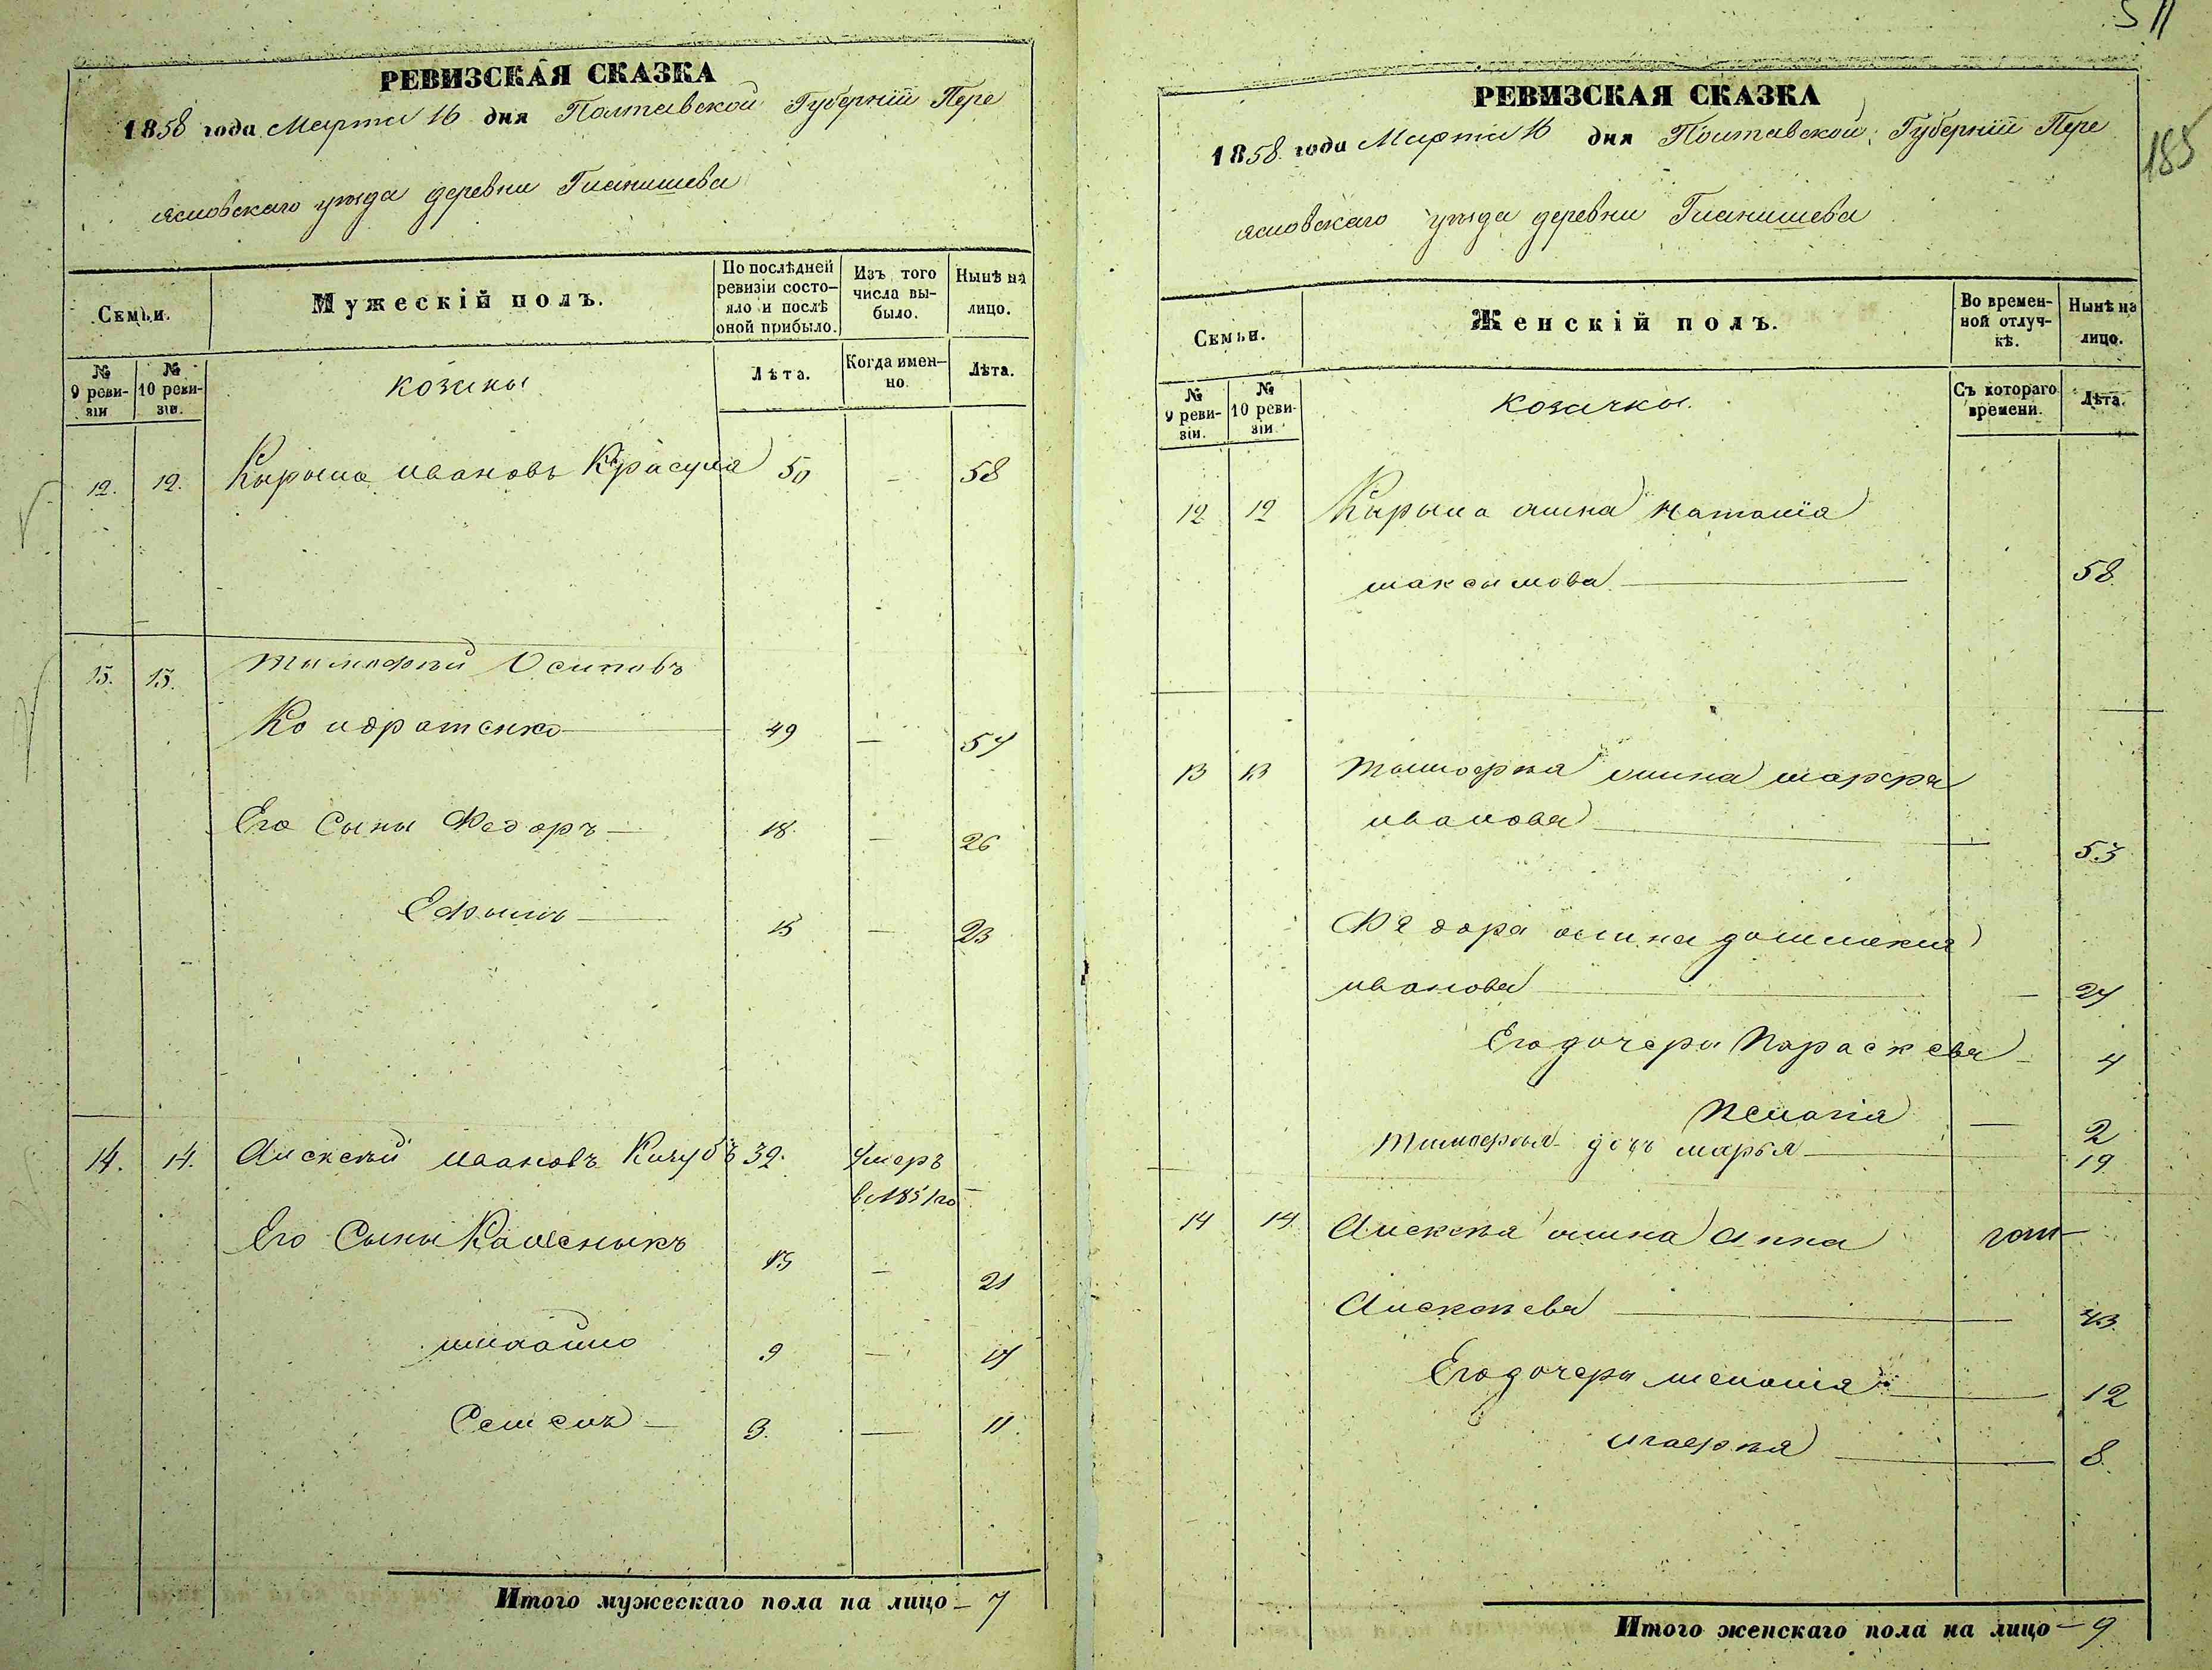 РЕВИЗСКАЯ СКАЗКА
1858 года Марта 16 дня Полтавской Губерніи Пере
яславскаго уезда деревни Гланишева
Семьи.
Мужескій полъ.
По послѣдней ревизіи состояло и послѣ оной прибыло.
Изъ того числа выбыло.
Нынѣ на лицо.
№ 9 ревизіи
№ 10 ревизіи.
козаки
Лѣта.
Когда именно.
Лѣта.
12. 12. Кирыло Ивановъ Красуля 50 — 58
13. 13. Тимофей Осиповъ
Кондратенко — 49 — 57
Его Сыны Федоръ — 18 — 26
Ефымъ — 15 — 23
14. 14. Алексей Ивановъ Коцубъ 32. умеръ
в 1851 го —
Его Сыны Каленыкъ 13 — 21
михайло 9 — 17
Семенъ — 3. — 11.
Итого мужескаго пола на лицо — 7
511
185
РЕВИЗСКАЯ СКАЗКА
1858 года Марта 16 дня Полтавской Губерніи Пере
яславскаго уезда деревни Гланишева
Семьи.
Женскій полъ.
Во временной отлучкѣ.
Нынѣ на лицо.
№ 9 ревизіи.
№ 10 ревизіи
козачки.
Съ котораго времени.
Лѣта.
12 12 Кирыла жина наталія
максимова — 58
13 13 Тимофея жина марфа
иванова — 53
Федора жина домникия
иванова — — 27
Его дочери Параскева — 4
Пелагія — 2
Тимофея дочь марья — 19
14 14 Алексея жина анна
Алексеева — 43
Его дочери меланія — 12
агафія — 8.
Итого женскаго пола на лицо — 9